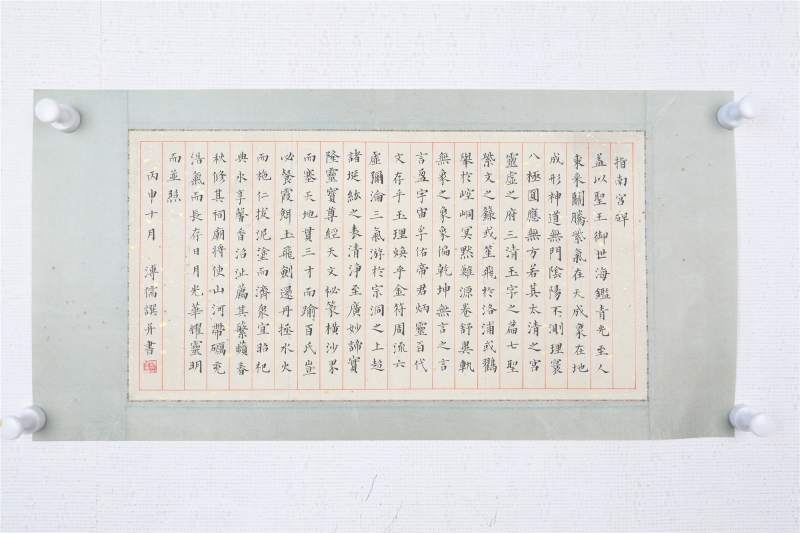 指南宮碑
蓋以聖王御世海鑑青光至人
東來關騰紫氣在天成象在地
成形神道無門陰陽不測理寰
八極圓應無方若其太清之宮
靈虛之府三清玉字之篇七聖
紫文之籙或笙飛於洛浦或鶴
舉於崆峒冥默難源卷舒異軌
無象之象象偏乾坤無言之言
言盈宇宙孚佑帝君炳靈百代
文存乎玉理煥乎金符周流六
虛彌淪三氣游於宗洞之上超
諸埏紘之表清淨至廣妙諦寶
隆靈寶尊經天文祕篆橫沙界
而塞天地貫三才而踰百氏豈
必餐霞餌玉飛劍還丹拯水火
而施仁拔泥塗而濟衆宜昭祀
典永享馨香沼沚薦其蘩蘋春
秋修其祠廟將使山河帶礪充
浩氣而長存日月光華耀靈明
而並照
丙申十月 溥儒譔并書